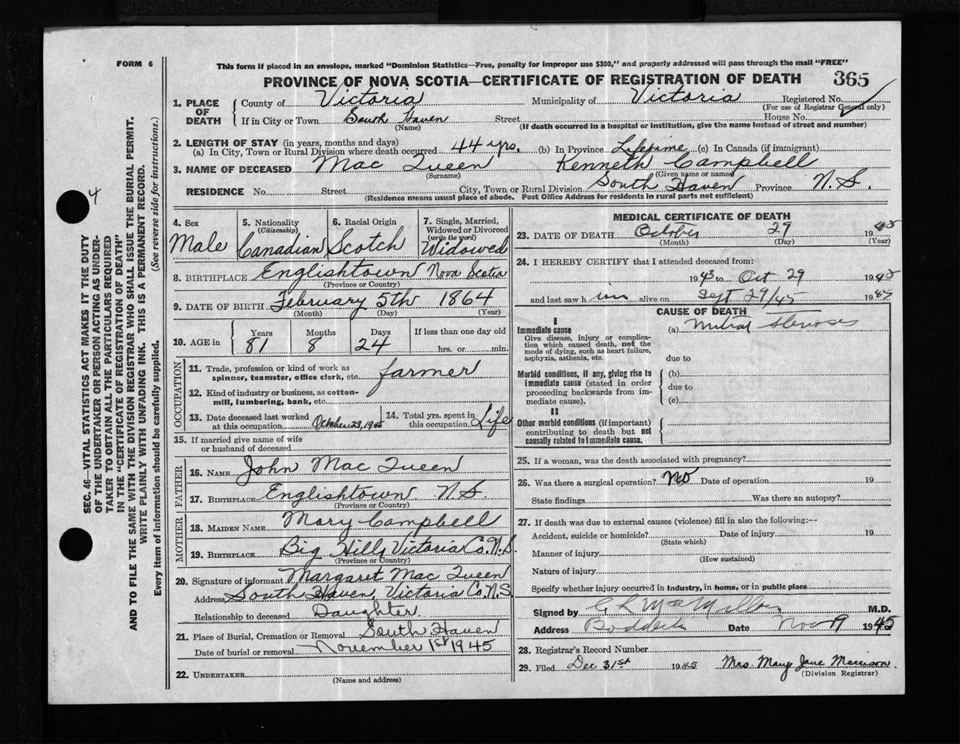 FORM 6
This form if placed in an envelope, marked "Dominion Statistics—Free, penalty for improper use $300," and properly addressed will pass through the mail "FREE"
PROVINCE OF NOVA SCOTIA—CERTIFICATE OF REGISTRATION OF DEATH 365
1. PLACE OF DEATH
County of Victoria Municipality of Victoria Registered No.
(For use of Registrar General only)
If in City or Town South Haven Street House No.
(Name) (If death occurred in a hospital or institution, give the name instead of street and number)
2. LENGTH OF STAY (in years, months and days)
(a) In City, Town or Rural Division where death occurred 44 yrs. (b) In Province Lifetime (c) In Canada (if immigrant)
3. NAME OF DECEASED Mac Queen Kenneth Campbell
(Surname) (Given name or names)
RESIDENCE No. Street City, Town or Rural Division South Haven Province N.S.
(Residence means usual place of abode. Post Office Address for residents in rural parts not sufficient)
4. Sex
Male
5. Nationality
(Citizenship)
Canadian
6. Racial Origin
Scotch
7. Single, Married, Widowed or Divorced
(write the word)
Widowed
8. BIRTHPLACE Englishtown Nova Scotia
(Province or Country)
9. DATE OF BIRTH February 5th 1864
(Month) (Day) (Year)
10. AGE in
Years Months Days If less than one day old
81 8 24 hrs. or min.
OCCUPATION
11. Trade, profession or kind of work as
spinner, teamster, office clerk, etc. farmer
12. Kind of industry or business, as cotton-
mill, lumbering, bank, etc.
13. Date deceased last worked
at this occupation October 23, 1945
14. Total yrs. spent in
this occupation Life
15. If married give name of wife
or husband of deceased
FATHER
16. NAME John Mac Queen
17. BIRTHPLACE Englishtown N.S.
(Province or Country)
MOTHER
18. MAIDEN NAME Mary Campbell
19. BIRTHPLACE Big Hill, Victoria Co. N.S.
(Province or Country)
20. Signature of informant Margaret Mac Queen
Address South Haven, Victoria Co. N.S.
Relationship to deceased Daughter
21. Place of Burial, Cremation or Removal South Haven
Date of burial or removal November 1st 1945
22. UNDERTAKER
(Name and address)
MEDICAL CERTIFICATE OF DEATH
23. DATE OF DEATH October 29 1945
(Month) (Day) (Year)
24. I HEREBY CERTIFY that I attended deceased from:
1943 to Oct 29 1945
and last saw h im alive on Sept 29/45 19
CAUSE OF DEATH
I
Immediate cause (a) Mitral Stenosis
Give disease, injury or complica-
tion which caused death, not the
mode of dying, such as heart failure,
asphyxia, asthenia, etc. due to
Morbid conditions, if any, giving rise to (b)
immediate cause (stated in order due to
proceeding backwards from im-
mediate cause). (c)
II
Other morbid conditions (if important)
contributing to death but not
causally related to immediate cause.
25. If a woman, was the death associated with pregnancy?
26. Was there a surgical operation? No Date of operation 19
State findings Was there an autopsy?
27. If death was due to external causes (violence) fill in also the following:—
Accident, suicide or homicide? Date of injury 19
(State which)
Manner of injury
(How sustained)
Nature of injury
Specify whether injury occurred in industry, in home, or in public place
Signed by C L MacMillan M.D.
Address Baddeck Date Nov 9 1945
28. Registrar's Record Number
29. Filed Dec 31st 1945 Mrs. Mary Jane Morrison
(Division Registrar)
4
SEC. 46—VITAL STATISTICS ACT MAKES IT THE DUTY
OF THE UNDERTAKER OR PERSON ACTING AS UNDER-
TAKER TO OBTAIN ALL THE PARTICULARS REQUIRED
IN THE "CERTIFICATE OF REGISTRATION OF DEATH"
AND TO FILE THE SAME WITH THE DIVISION REGISTRAR WHO SHALL ISSUE THE BURIAL PERMIT.
WRITE PLAINLY WITH UNFADING INK. THIS IS A PERMANENT RECORD.
Every item of information should be carefully supplied. (See reverse side for instructions.)